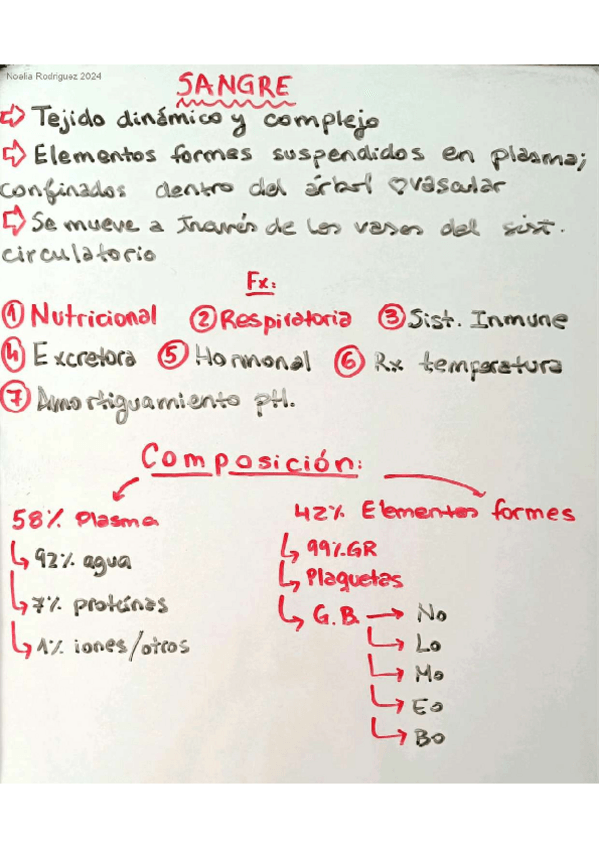 Noelia Rodriguez 2024
SANGRE
⇨ Tejido dinámico y complejo
⇨ Elementos formes suspendidos en plasma;
confinados dentro del árbol ♡vascular
⇨ Se mueve a través de los vasos del sist.
circulatorio
Fx:
① Nutricional ② Respiratoria ③ Sist. Inmune
④ Excretora ⑤ Hormonal ⑥ Rx temperatura
⑦ Amortiguamiento pH.
Composición:
58% Plasma
↳ 92% agua
↳ 7% proteínas
↳ 1% iones/otros
42% Elementos formes
↳ 99% GR
↳ Plaquetas
↳ G.B. → No
↳ Lo
↳ Mo
↳ Eo
↳ Bo